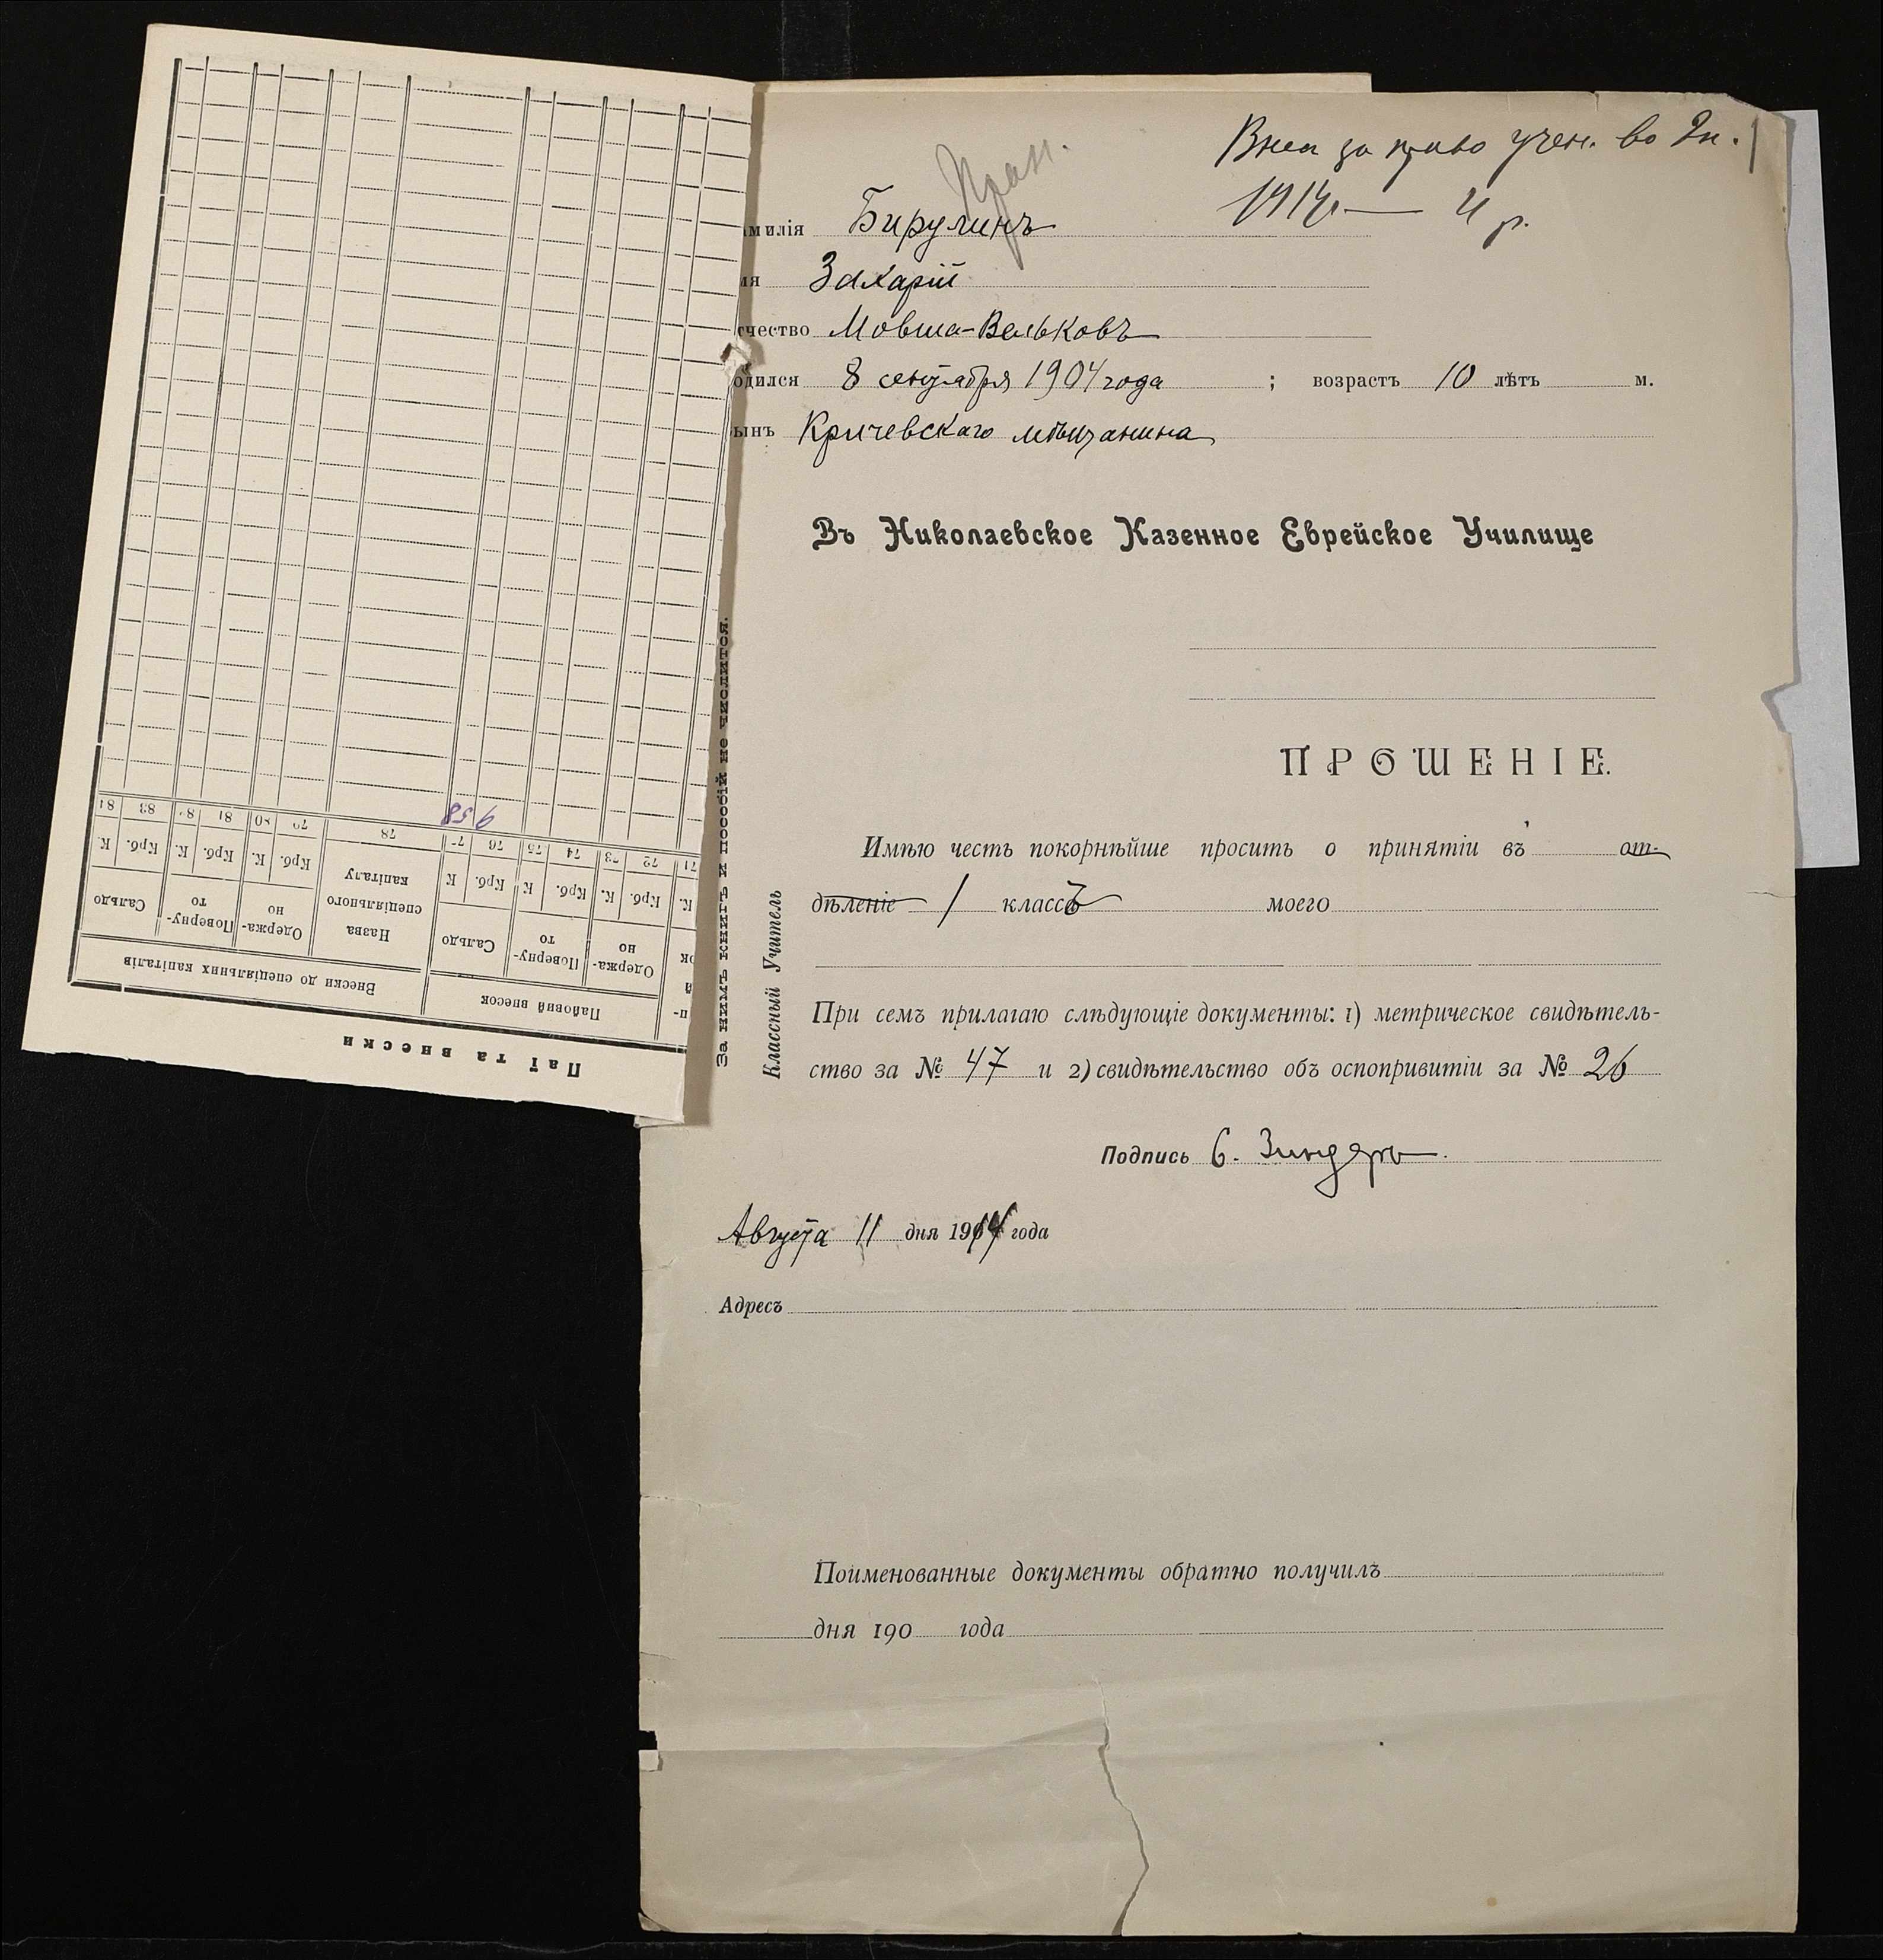 Внес за право учен. во 2п.
1914 — 4 р.
амилія Бирулинъ
мя Захарій
тчество Мовша-Вельковъ
одился 8 сентября 1904 года ; возрастъ 10 лѣтъ м.
ынъ Кричевскаго мѣщанина
Въ Николаевское Казенное Еврейское Училище
ПРОШЕНІЕ.
Имѣю честь покорнѣйше просить о принятіи въ от-
дѣленіе 1 классъ моего
При семъ прилагаю слѣдующіе документы: 1) метрическое свидѣтель-
ство за № 47 и 2) свидѣтельство объ оспопривитіи за № 26
Подпись С. Зиндеръ.
Августа 11 дня 1914 года
Адресъ
Поименованные документы обратно получилъ
дня 190 года
За нимъ книгъ и пособій не числится.
Классный Учитель
Паї та внески
Пайовий внесок Внески до спеціяльних капіталів
Одержа- но Поверну- то Сальдо Назва спеціяльного капіталу Одержа- но Поверну- то Сальдо
К. Крб. К. Крб. К Крб. К Крб. К. Крб. К. Крб. К.
71 72 73 74 75 76 77 78 79 80 81 82 83 84
958